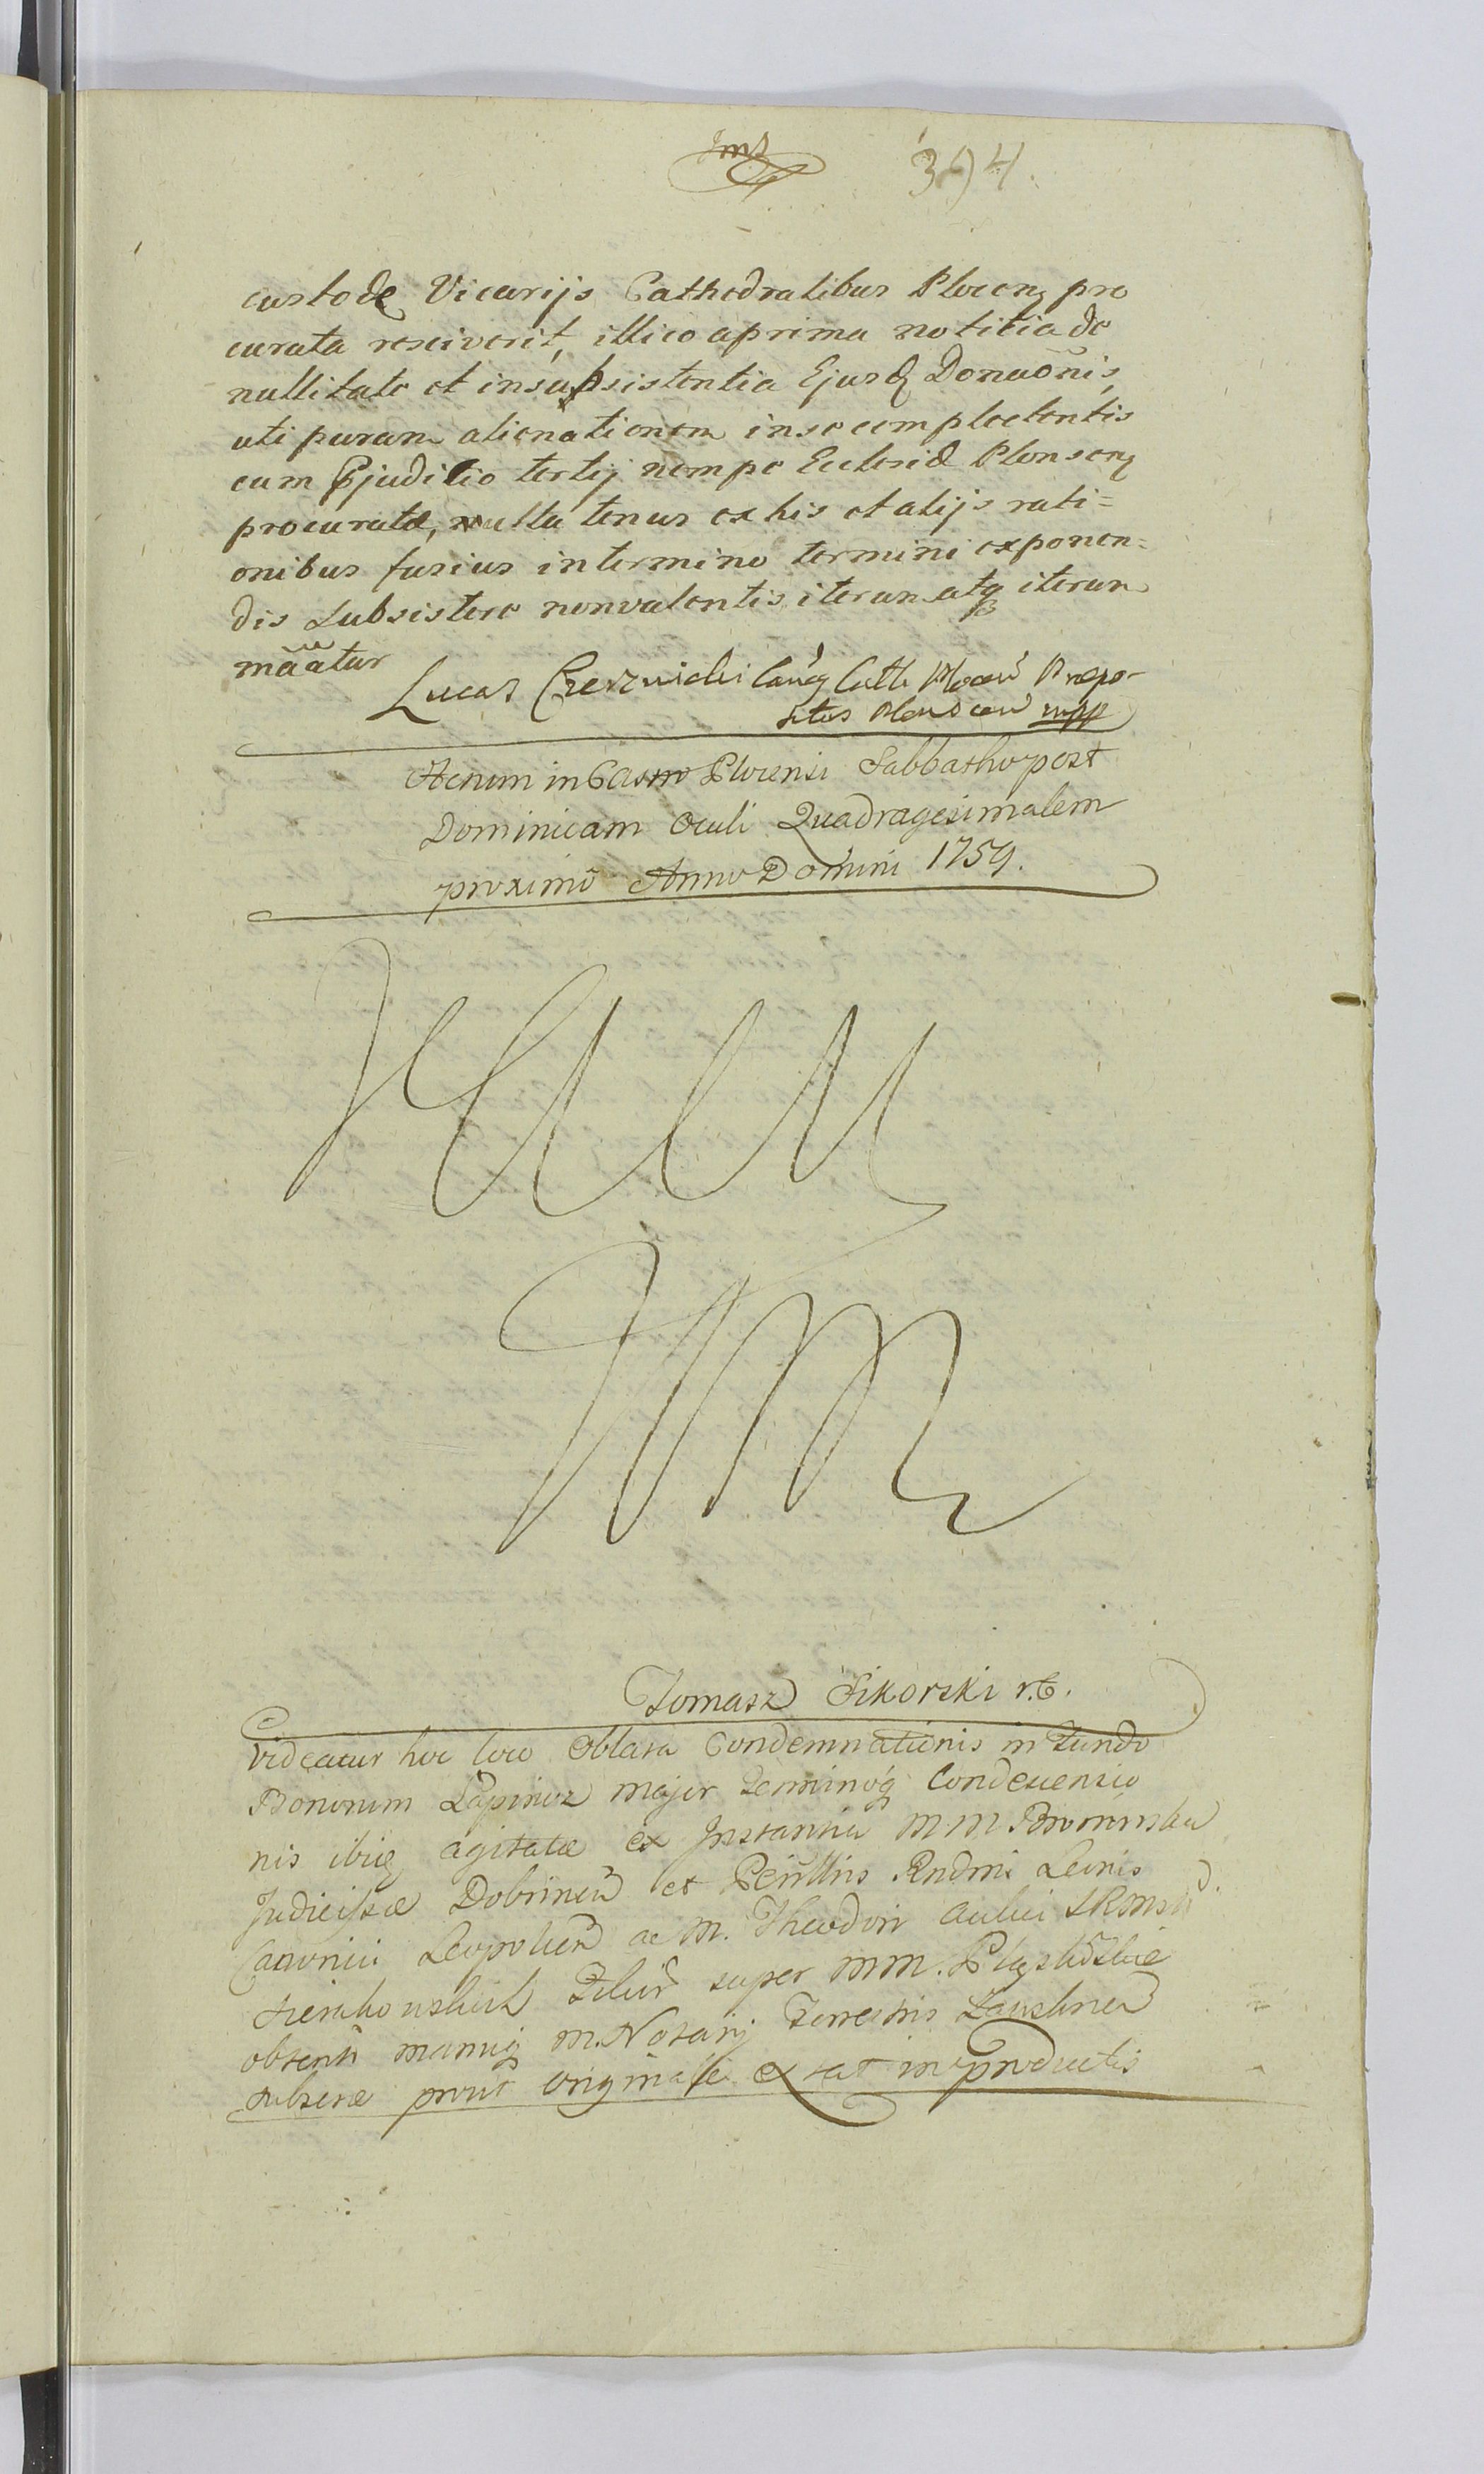 394.
custodę Vicarijs Cathedralibus Plocenȝ pro
curata resciverit, illico aprima notitia de
nullitate et insubsistentia Ejusdȝ Donaõnis,
uti puram alienationem inse complectentis
cum Pjudicio tertij nempe Ecclesiæ Plonsenȝ
procuratæ, nulla tenus ex his et alijs rati=
onibus fusius intermino termini exponen=
dis Subsistere nonvalentis, iterum atqȝ iterum
mãatur
Lucas Czerznicki Canȝ Cath Plocen Præpo-
situs Plonscen mpp
Actum in Castro Plocensi Sabbatho post
Dominicam Oculi Quadragesimalem
proximo Anno Domini 1759.
Tomasz Sikorski r.C.
Videatur hoc loco Oblata Condemnationis in Fundo
Bonorum Łapinoz major Terminoqȝ Condescensio
nis ibiqȝ agitatæ ex Instantia M M
Judicissæ Dobrinen et Perillris Rndmi Leonis
Canonici Leopolien ac M. Theodori Aulici SRM
super MM.
obtenti manuqȝ M. Notarij Terrestris Zauskrnen
subscræ prout originale extat in productis